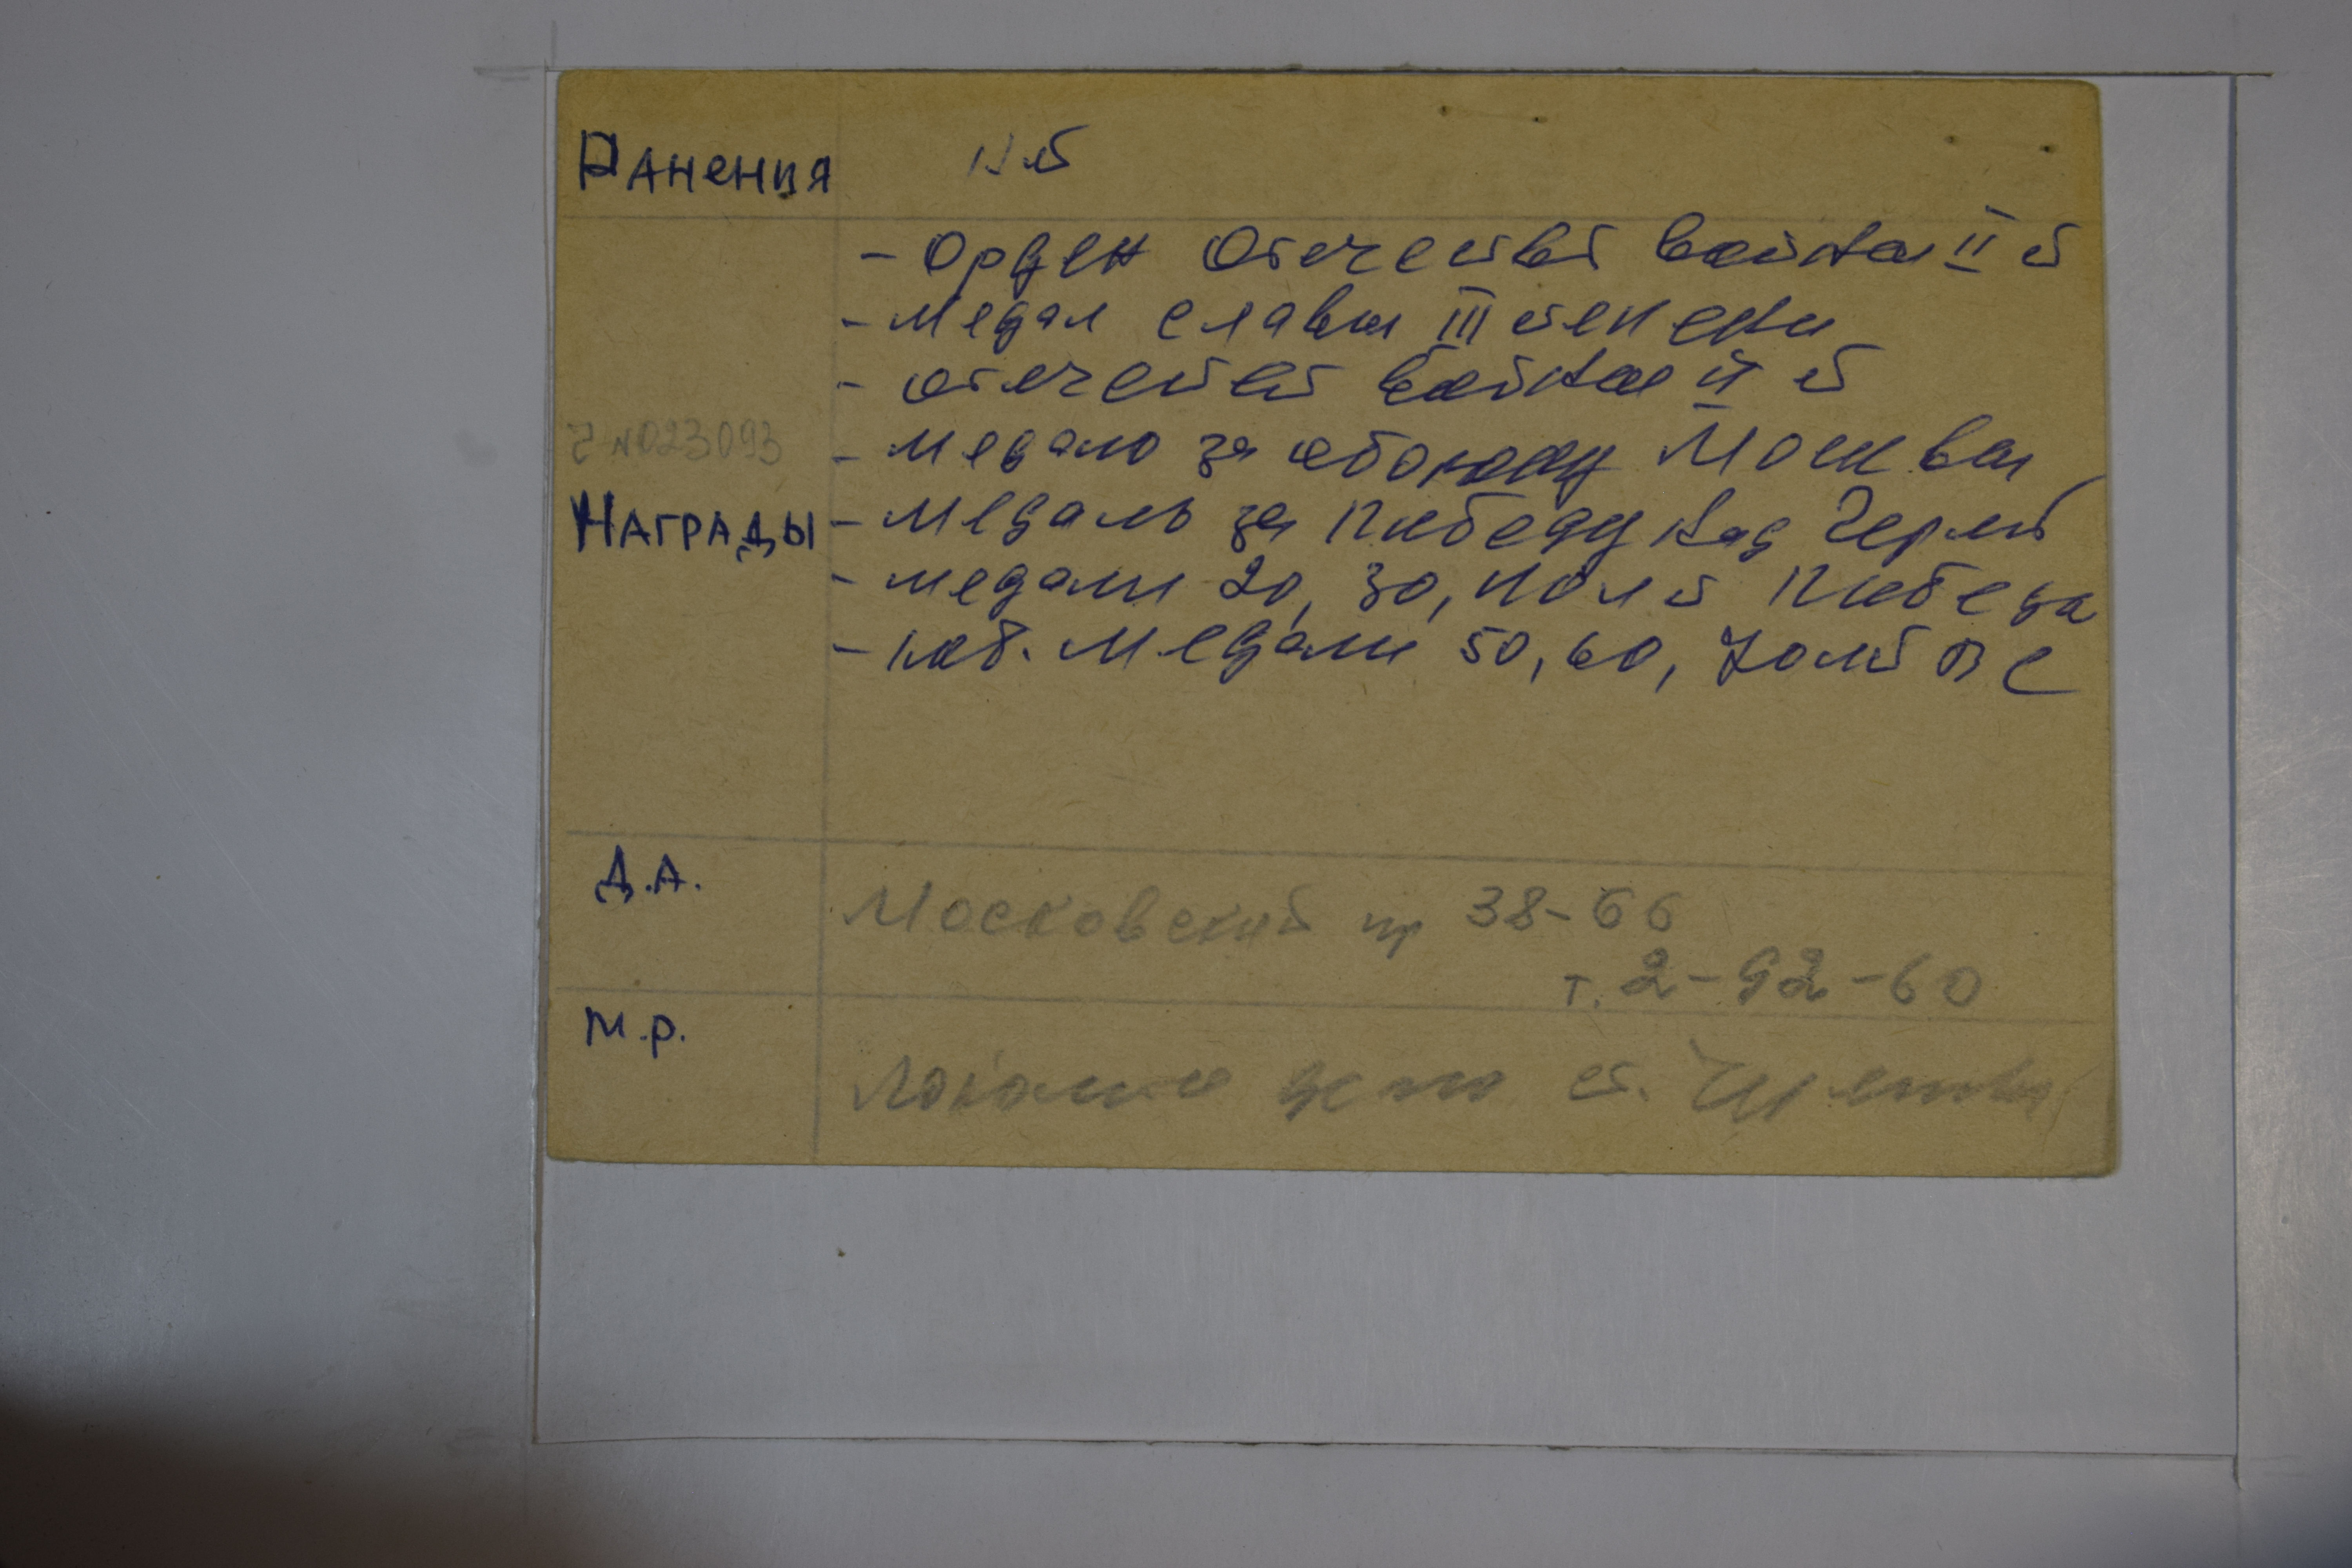 Ранения нет
- Орден Отечеств войны II ст
- Медал славы III степени
- отечеств войны II ст
г N023093
- Медаль за оборону Москвы
Награды - Медаль за Победу над Герм
- медали 20, 30, 40 лет Победы
- юб. медали 50, 60, 70 лет ВС
Д.А.
Московский пр 38-66
т. 2-92-60
М.р.
депо ст.